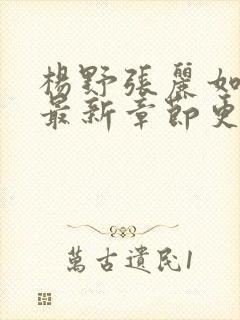 楊野張麗如
最新章節更
萬古遺民1